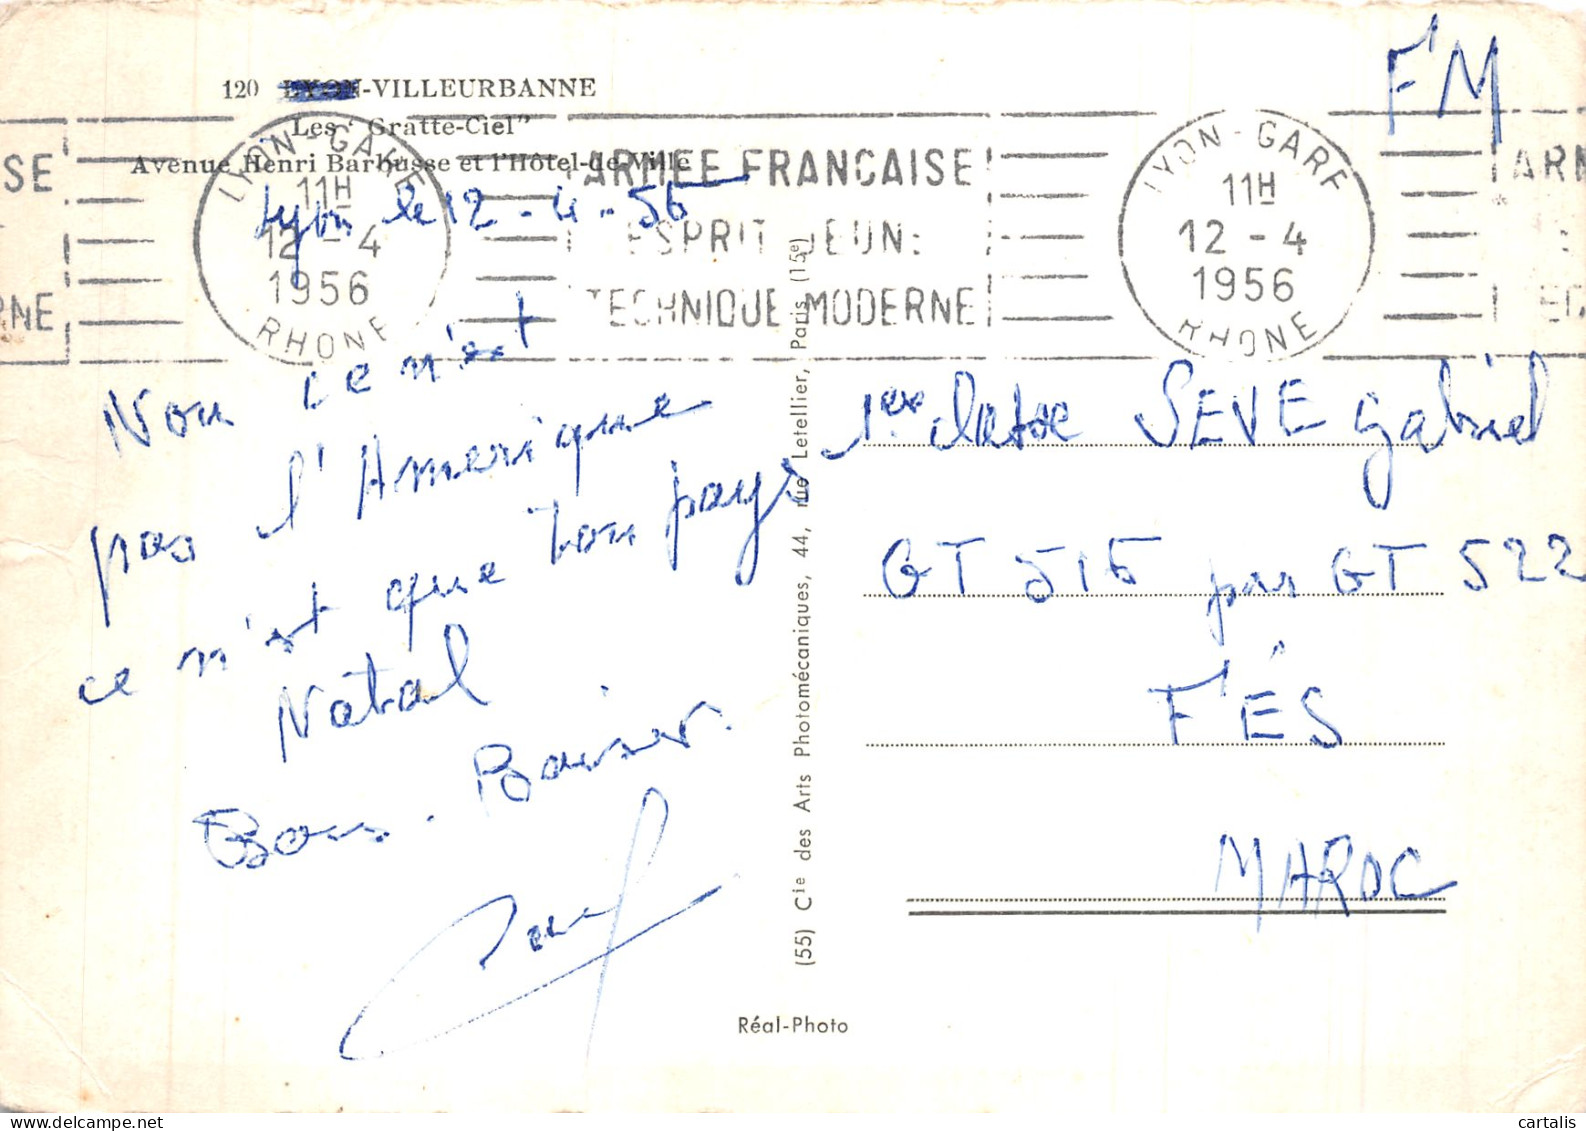 120 LYON-VILLEURBANNE
Les "Gratte-Ciel"
Avenue Henri Barbusse et l'Hôtel-de-Ville
LYON-GARE
11H
12-4
1956
RHONE
ARMEE FRANCAISE
ESPRIT JEUNE
TECHNIQUE MODERNE
LYON-GARE
11H
12-4
1956
RHONE
FM
Lyon le 12-4-56
Non ce n'est
pas l'Amerique
ce n'est que ton pays
Natal
Bons Baisers
1ere classe SEVE Gabriel
GT 515 par GT 522
FÉS
MAROC
(55) Cie des Arts Photomécaniques, 44, rue Letellier, Paris (15e)
Réal-Photo
cartalis